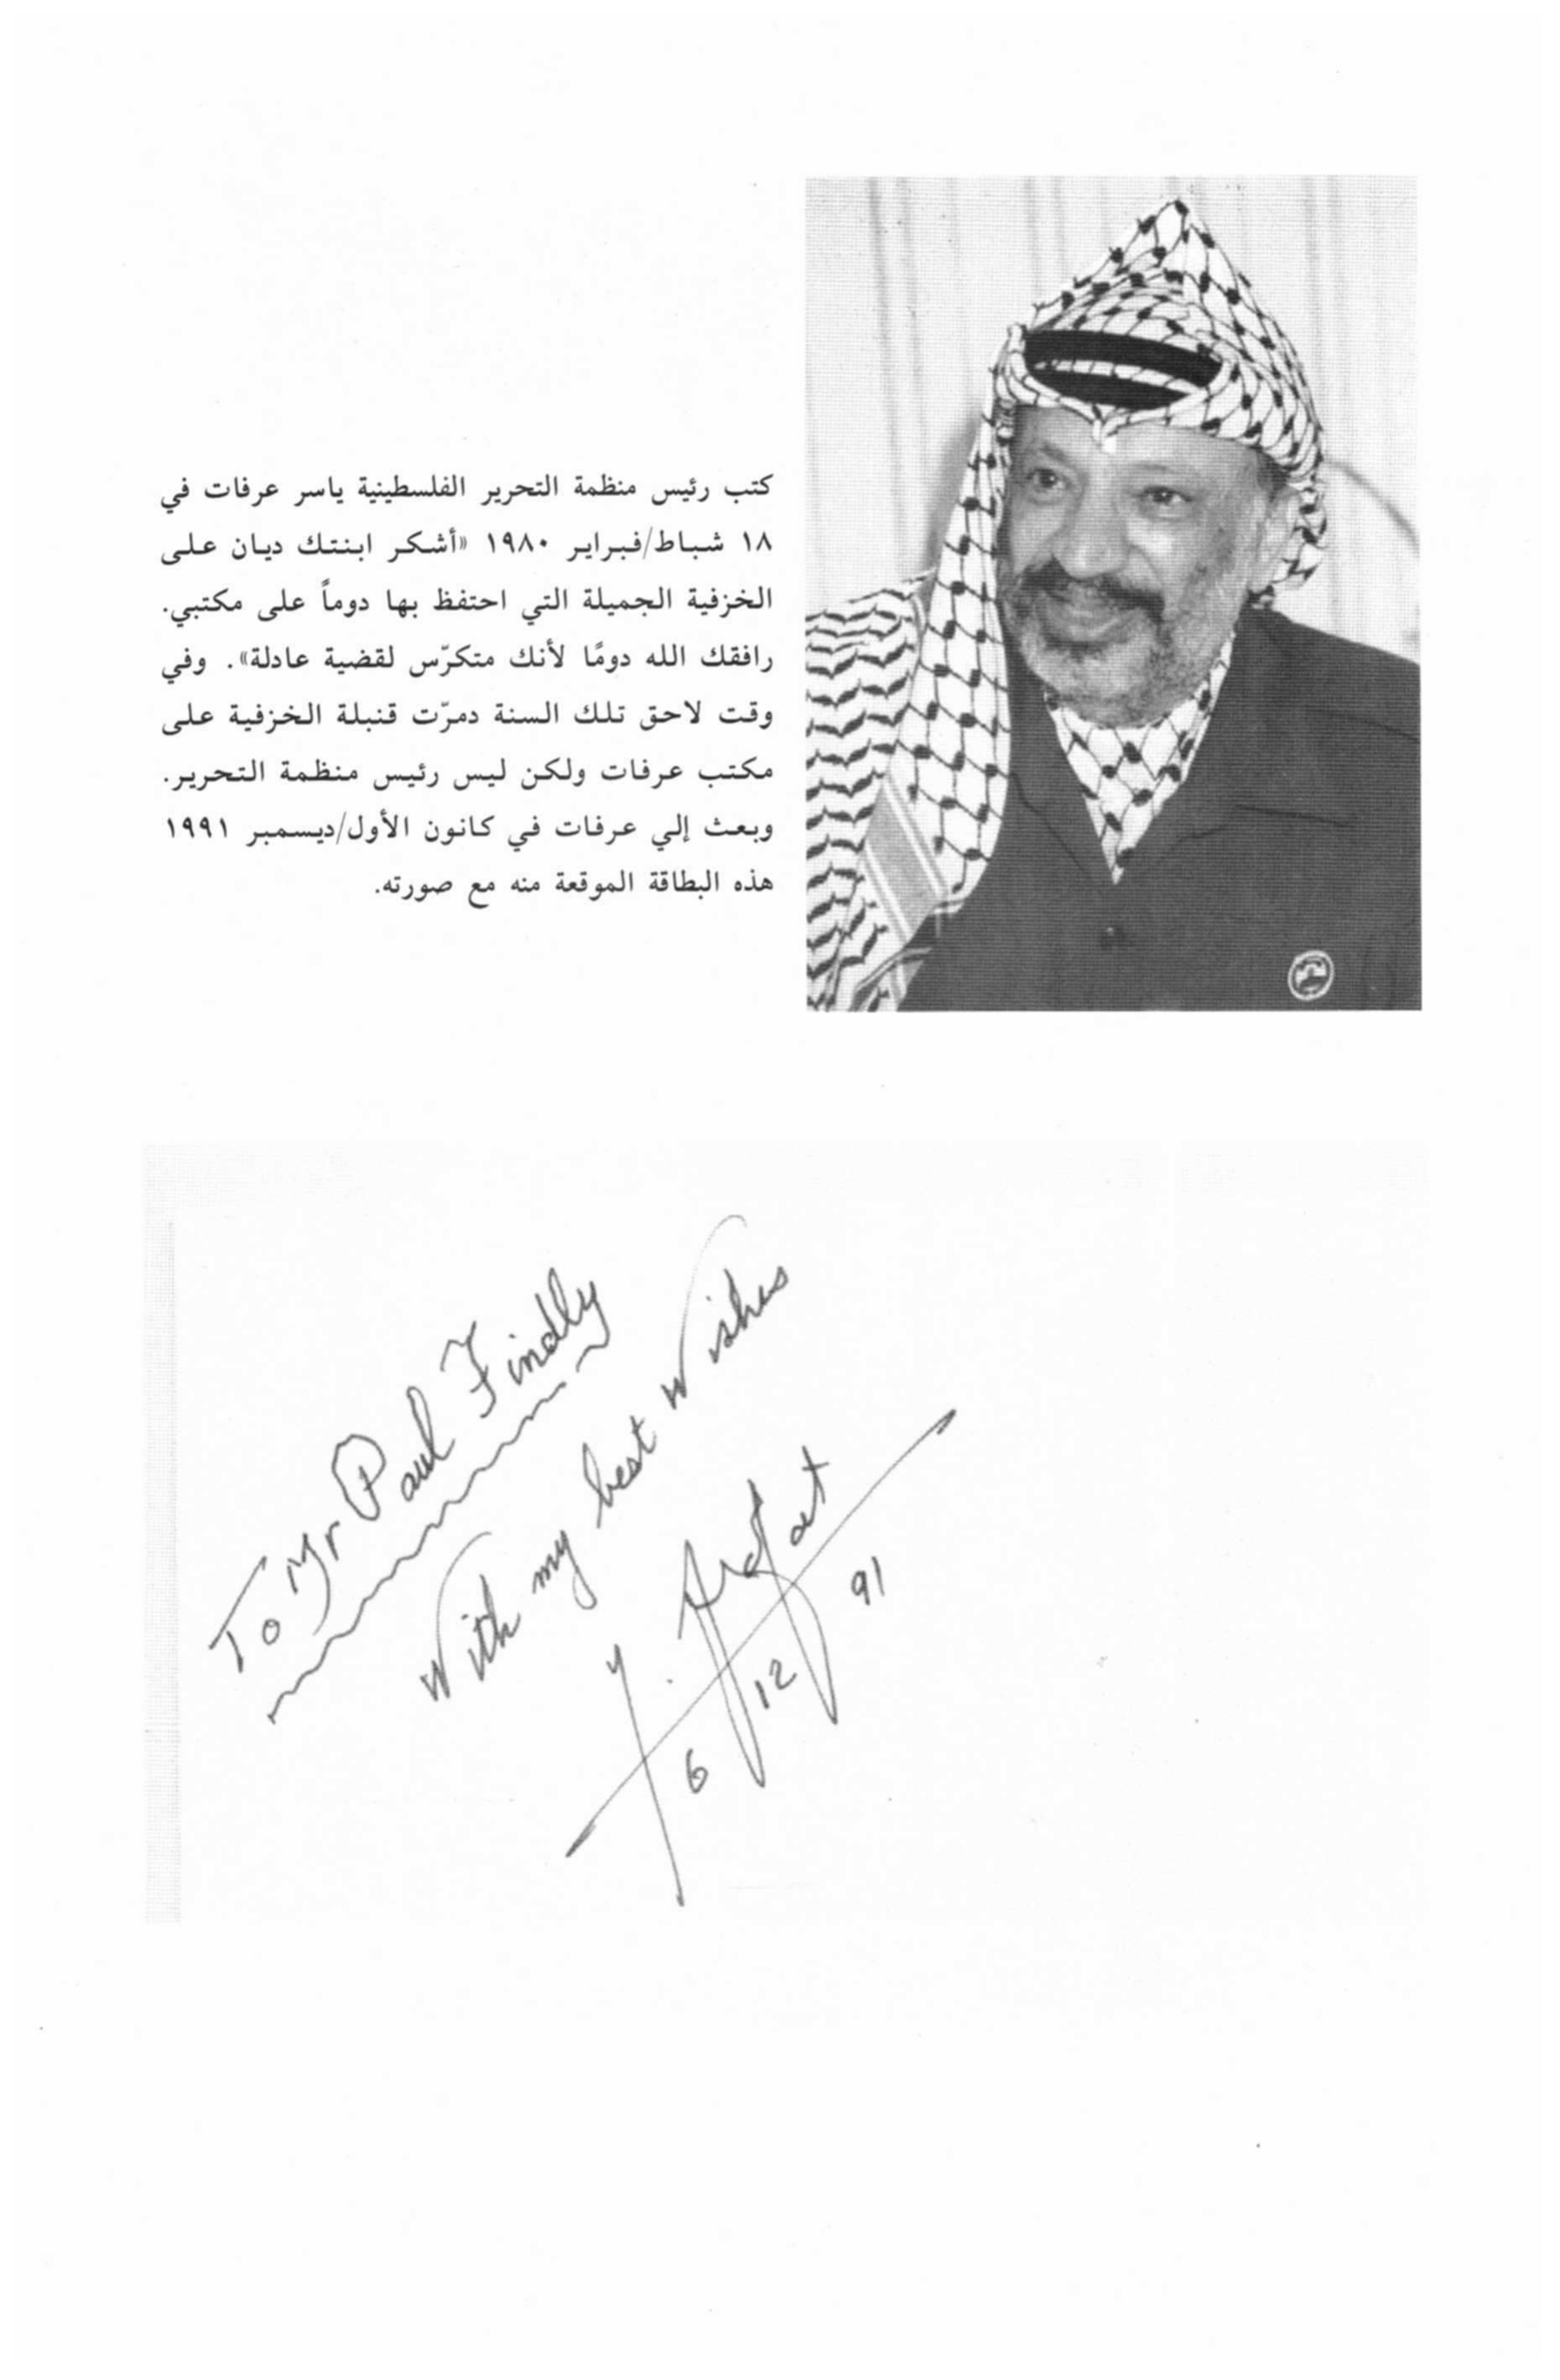 كتب رئيس منظمة التحرير الفلسطينية ياسر عرفات في
١٨ شباط/فبراير ١٩٨٠ «أشكر ابنتك ديان على
الخزفية الجميلة التي احتفظ بها دوماً على مكتبي.
رافقك الله دومًا لأنك متكرّس لقضية عادلة». وفي
وقت لاحق تلك السنة دمرّت قنبلة الخزفية على
مكتب عرفات ولكن ليس رئيس منظمة التحرير.
وبعث إلي عرفات في كانون الأول/ديسمبر ١٩٩١
هذه البطاقة الموقعة منه مع صورته.
To Mr Paul Findly
With my best wishes
Y. Arafat
6 12 91